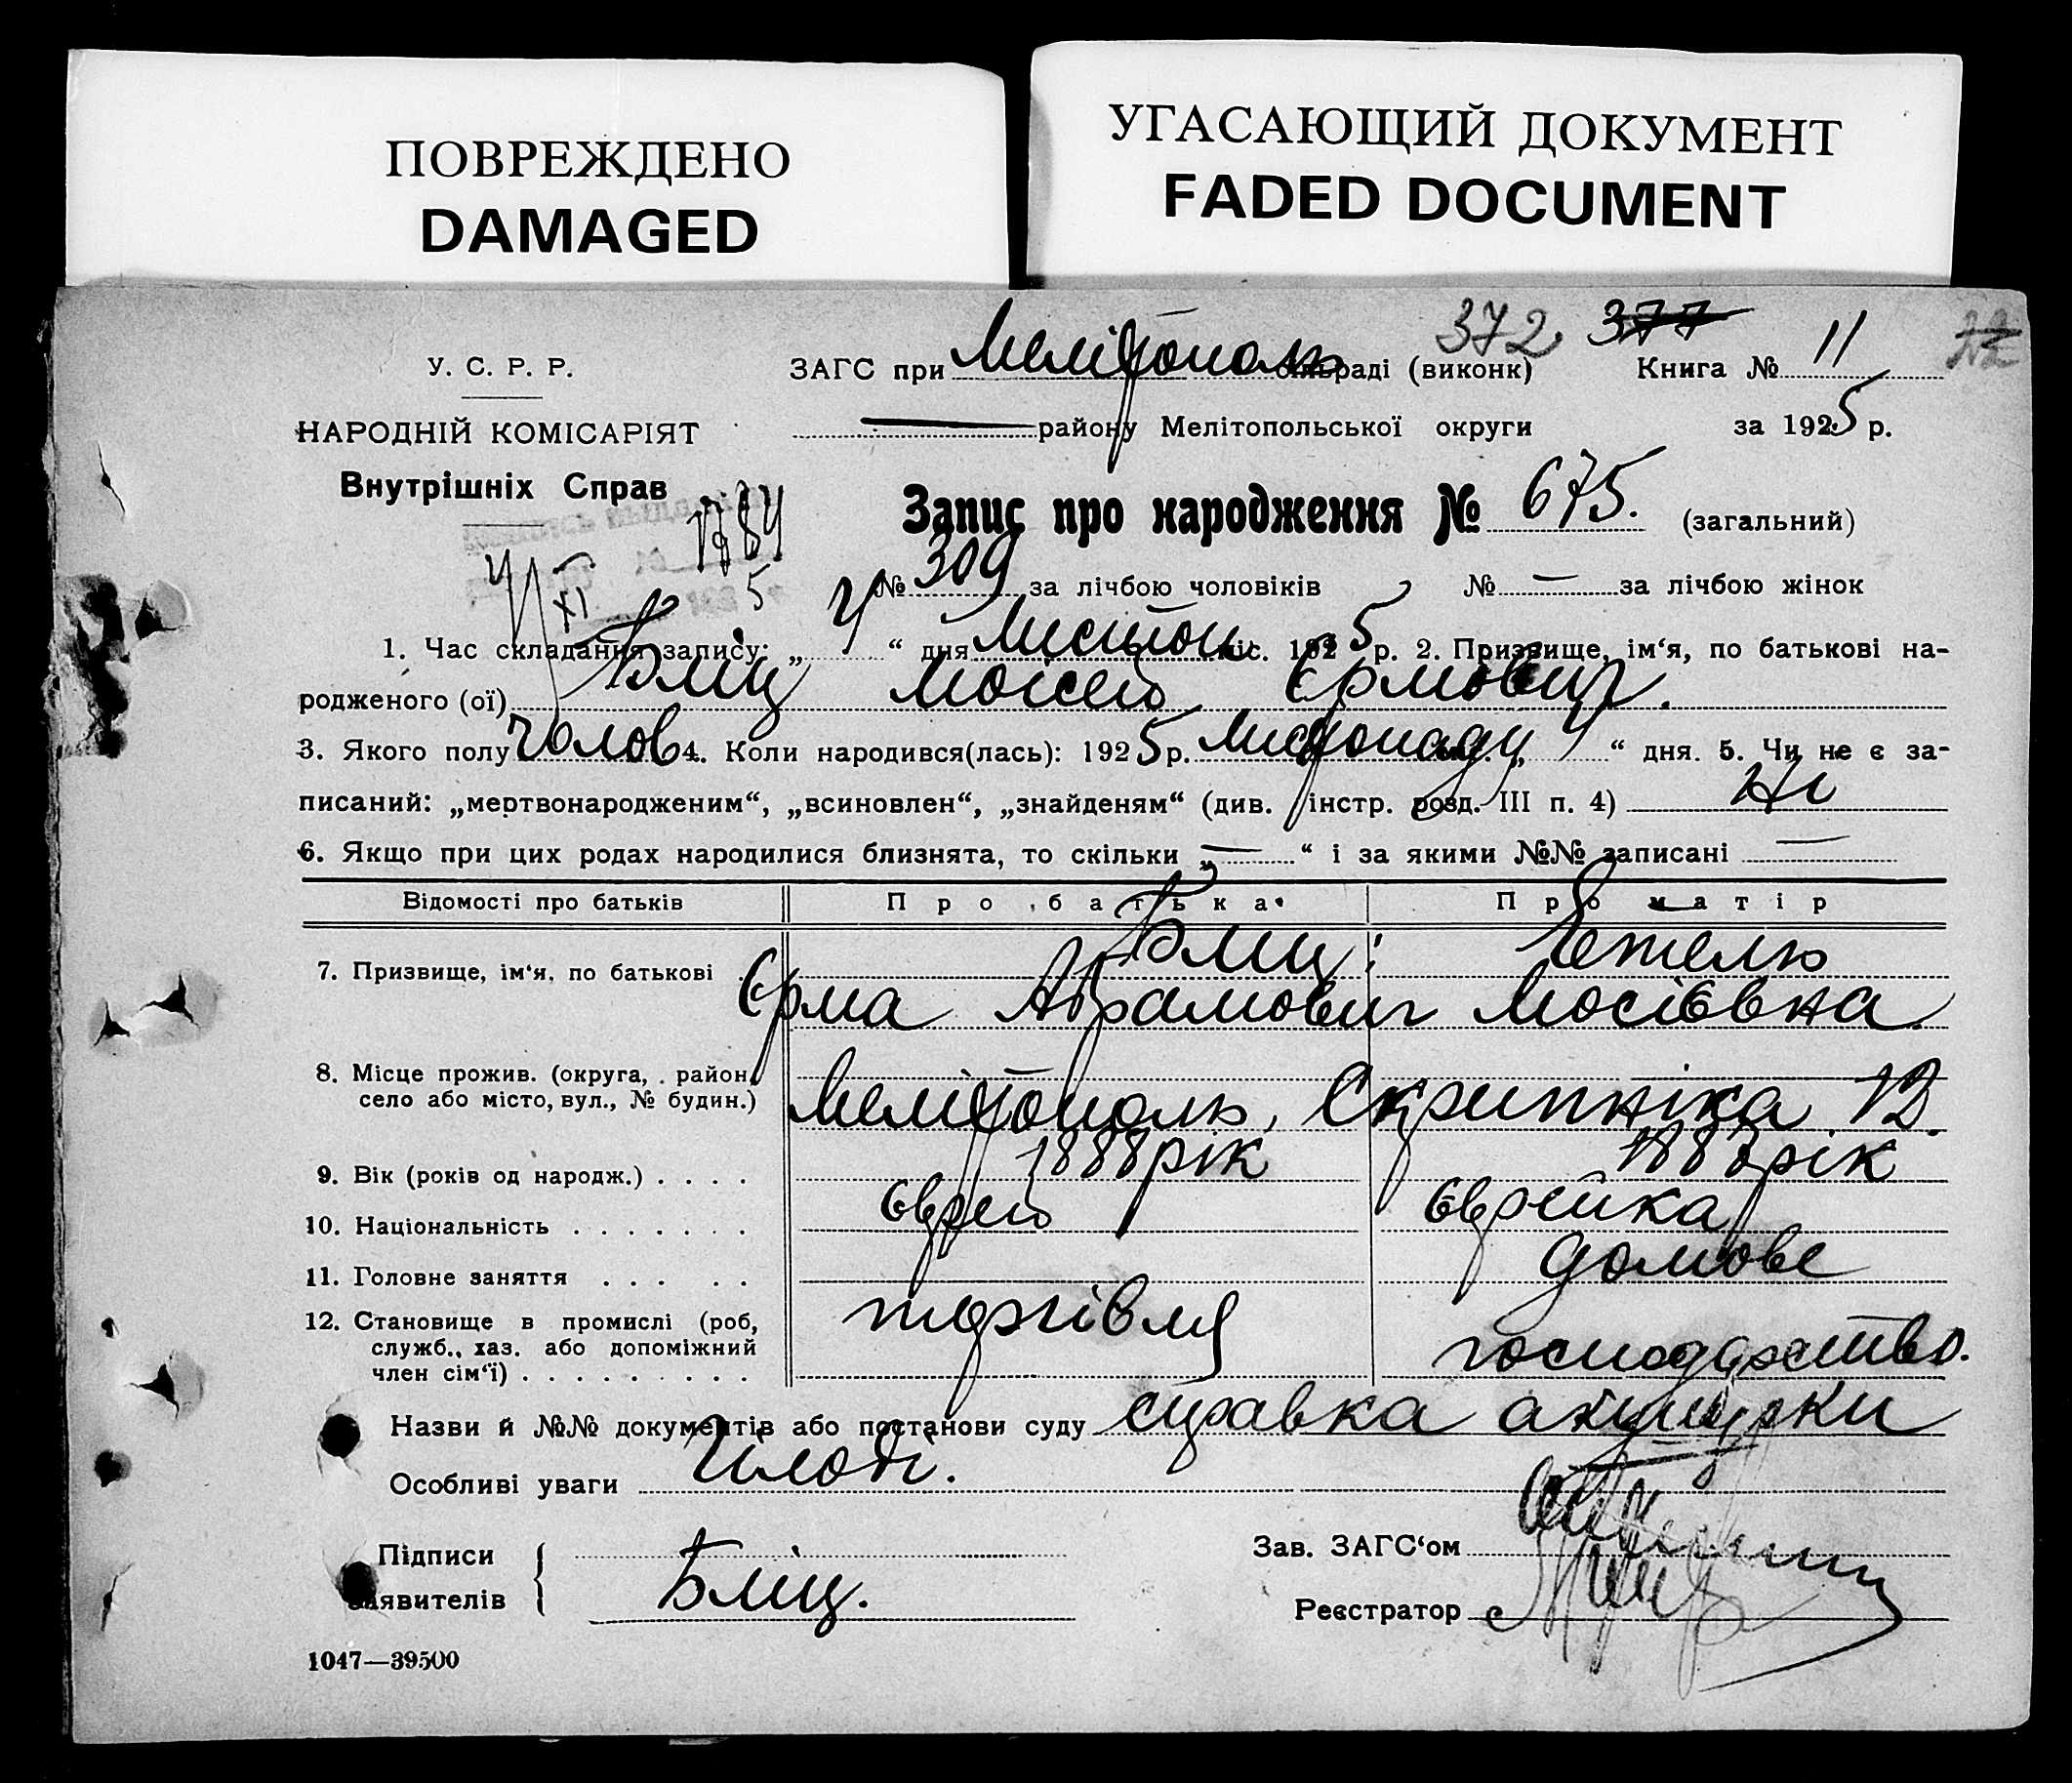 ПОВРЕЖДЕНО
DAMAGED
УГАСАЮЩИЙ ДОКУМЕНТ
FADED DOCUMENT
372 377
У. С. Р. Р. ЗАГС при Мелітополь раді (виконк) Книга № 11
НАРОДНІЙ КОМІСАРІЯТ — району Мелітопольської округи за 1925 р.
Внутрішніх Справ
Запис про народження № 675. (загальний)
№ 309 за лічбою чоловіків № — за лічбою жінок
4 XI 5
1. Час складання запису: „ 4 “ дня Листоп міс. 1925 р. 2. Призвище, ім‘я, по батькові на-
родженого (ої) Бліц Мойсей Єрмович.
3. Якого полу чолов 4. Коли народився(лась): 1925 р. Листопаду „ 4 “ дня. 5. Чи не є за-
писаний: „мертвонародженим“, „всиновлен“, „знайденям“ (див. інстр. розд. III п. 4) Ні
6. Якщо при цих родах народилися близнята, то скільки „ — “ і за якими №№ записані —
Відомості про батьків Про батька Про матір
7. Призвище, ім‘я, по батькові Бліц Єрма Абрамович Мосієвна
8. Місце прожив. (округа, район, село або місто, вул., № будин.) Мелітополь, Скрипніка 12.
9. Вік (років од народж.) . . . . 1888 рік 1888 рік
10. Національність . . . . . . . Єврей Єврейка
11. Головне заняття . . . . . домове
12. Становище в промислі (роб, служб., хаз. або допоміжний член сім‘ї) . . . . . . . . . торгівля господарство.
Назви й №№ документів або постанови суду справка акушерки
Особливі уваги
Підписи заявителів { Бліц.
Зав. ЗАГС‘ом
Реєстратор
1047—39500